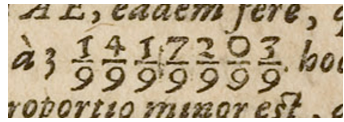 AE, eadem fere,
à 3 1417203/9999999 hoc
roportio minor est,